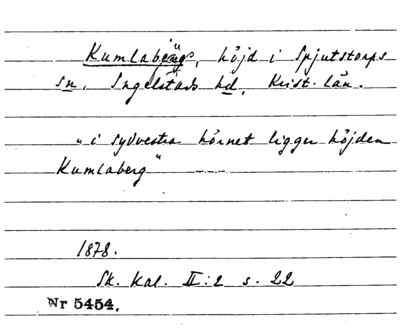 Kumlaberg, höjd i Spjutstorps
sn, Ingelstads hd, Krist. län.
"i sydvestra hörnet ligger höjden
Kumlaberg"
1878.
Sk. Kal. II:2 s. 22
Nr 5454.